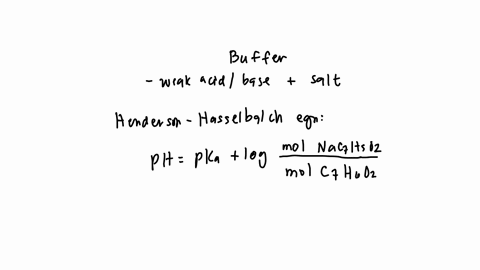 Buffer
- weak acid/base + salt
Henderson - Hasselbalch eqn:
pH = pKa + log mol NaC7H5O2 / mol C7H6O2